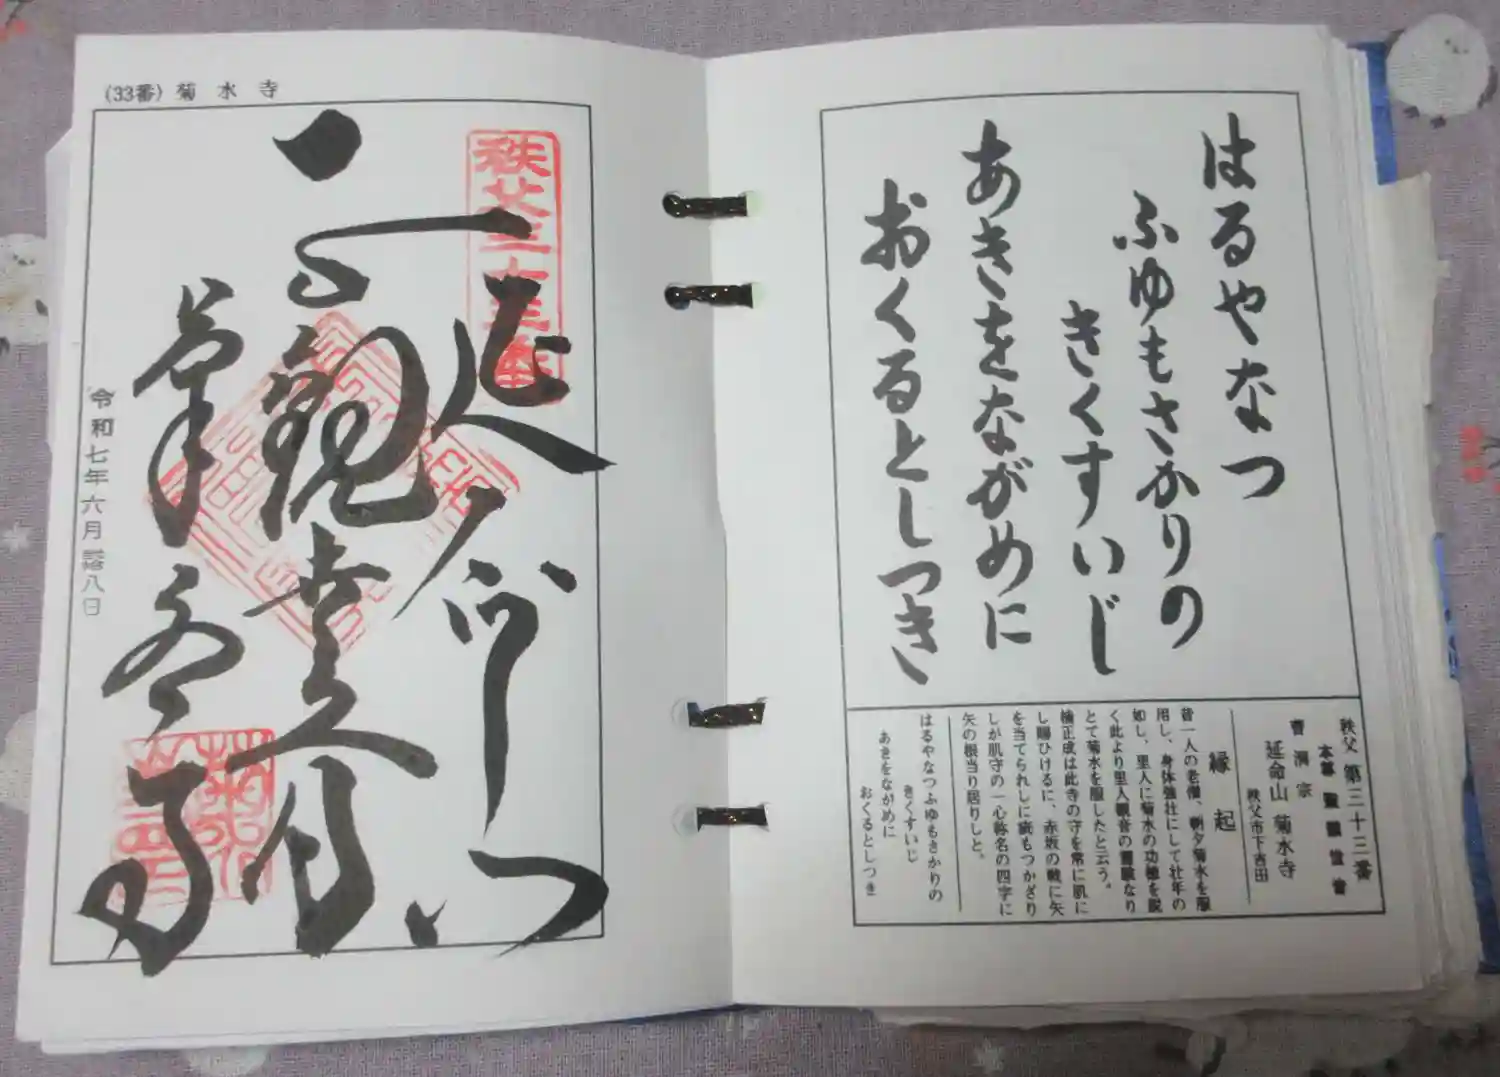 はるやなつ
ふゆもさかりの
きくすいじ
あきをながめに
おくるとしつき
秩父 第三十三番
本尊 聖観世音
曹洞宗
延命山 菊水寺
秩父市下吉田
縁起
昔一人の老僧、朝夕菊水を服
用し、身体強壮にして壮年の
如し、里人に菊水の功徳を説
く此より里人観音の霊験なり
とて菊水を服したと云う。
楠正成は此寺の守を常に肌に
し賜ひけるに、赤坂の戦に矢
を当てられしに疵もつかざり
しが肌守の一心称名の四字に
矢の根当り居りしと。
はるやなつふゆもさかりの
きくすいじ
あきをながめに
おくるとしつき
(33番) 菊水寺
秩父三十三番
延命山
観世音
菊水寺
令和七年六月 八日